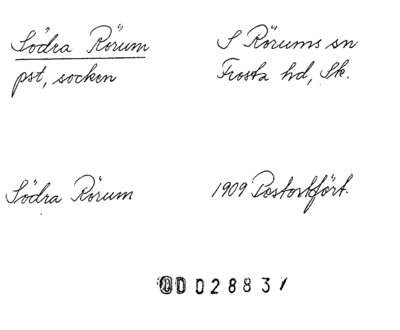 Södra Rörum
pst, socken
S Rörums sn
Frosta hd, Sk.
Södra Rörum
1909 Postortfört.
D028837